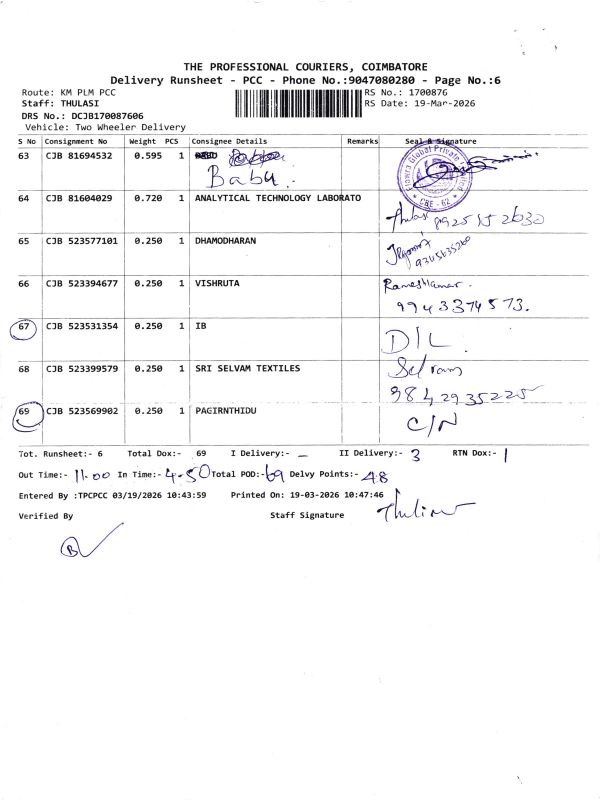 THE PROFESSIONAL COURIERS, COIMBATORE
Delivery Runsheet - PCC - Phone No.:9047080280 - Page No.:6
Route: KM PLM PCC RS No.: 1700876
Staff: THULASI RS Date: 19-Mar-2026
DRS No.: DCJB170087606
Vehicle: Two Wheeler Delivery
S No Consignment No Weight PCS Consignee Details Remarks Seal & Signature
63 CJB 81694532 0.595 1 Babu.
Global Private
CBE - 62
64 CJB 81604029 0.720 1 ANALYTICAL TECHNOLOGY LABORATO
Thulasi
65 CJB 523577101 0.250 1 DHAMODHARAN
66 CJB 523394677 0.250 1 VISHRUTA Rameshkumar.
9943374573.
67 CJB 523531354 0.250 1 IB D/L
68 CJB 523399579 0.250 1 SRI SELVAM TEXTILES Selvam
9842935225
69 CJB 523569902 0.250 1 PAGIRNTHIDU C/N
Tot. Runsheet:- 6 Total Dox:- 69 I Delivery:- - II Delivery:- 3 RTN Dox:- 1
Out Time:- 11.00 In Time:- 4-50 Total POD:- 69 Delvy Points:- 48
Entered By :TPCPCC 03/19/2026 10:43:59 Printed On: 19-03-2026 10:47:46
Verified By Staff Signature